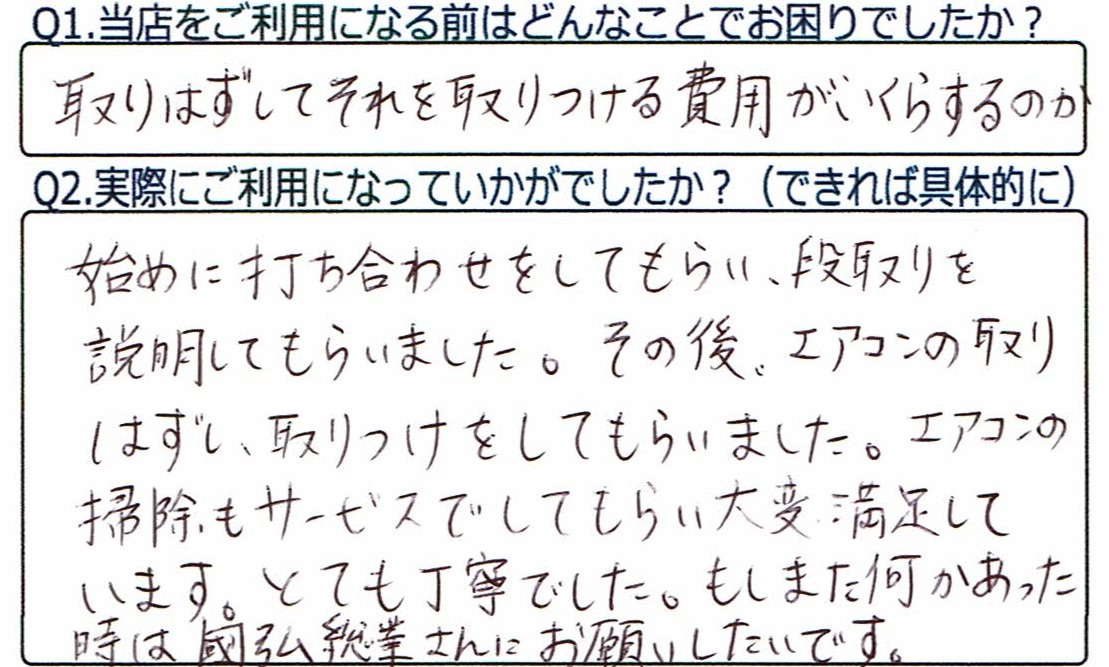 Q1.当店をご利用になる前はどんなことでお困りでしたか？
取りはずしてそれを取りつける費用がいくらするのか
Q2.実際にご利用になっていかがでしたか？（できれば具体的に）
始めに打ち合わせをしてもらい、段取りを
説明してもらいました。その後、エアコンの取り
はずし、取りつけをしてもらいました。エアコンの
掃除もサービスでしてもらい大変満足して
います。とても丁寧でした。もしまた何かあった
時は國弘総業さんにお願いしたいです。